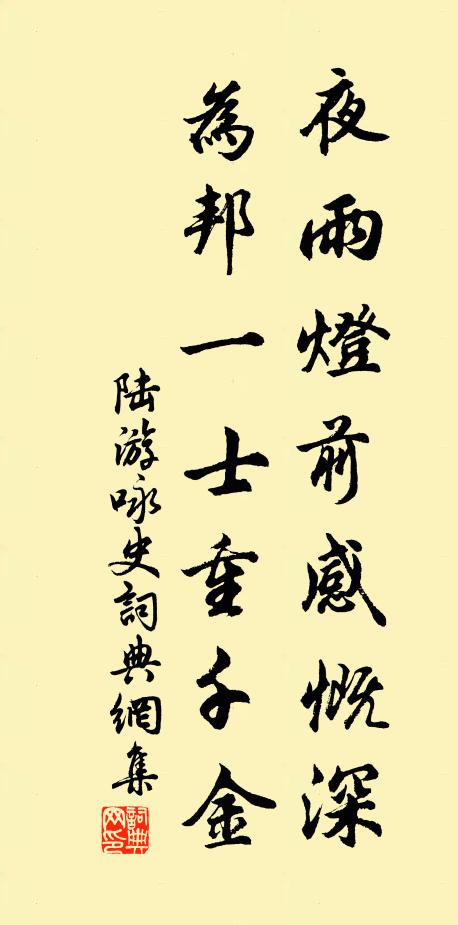 夜雨燈前感慨深
為邦一士重千金
陆游咏史詞典網集
詞典网印